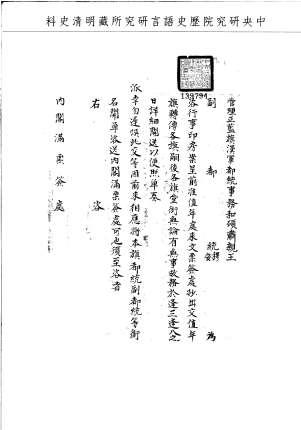 中央研究院歷史語言研究所藏明清史料
139794
管理正藍旗漢軍都統事務和碩肅親王
副都統 為
咨行事印房案呈前准值年處來文票簽處抄出交值年
旗轉傳各旗嗣後各旗堂銜無論有無事故務於逢三逢八之
日詳細開送以便照單奏
派幸勿遲悞此交等因前來相應將本旗都統副都統等銜
名開單咨送內閣滿票簽處可也須至咨者
右咨
內閣滿票簽處